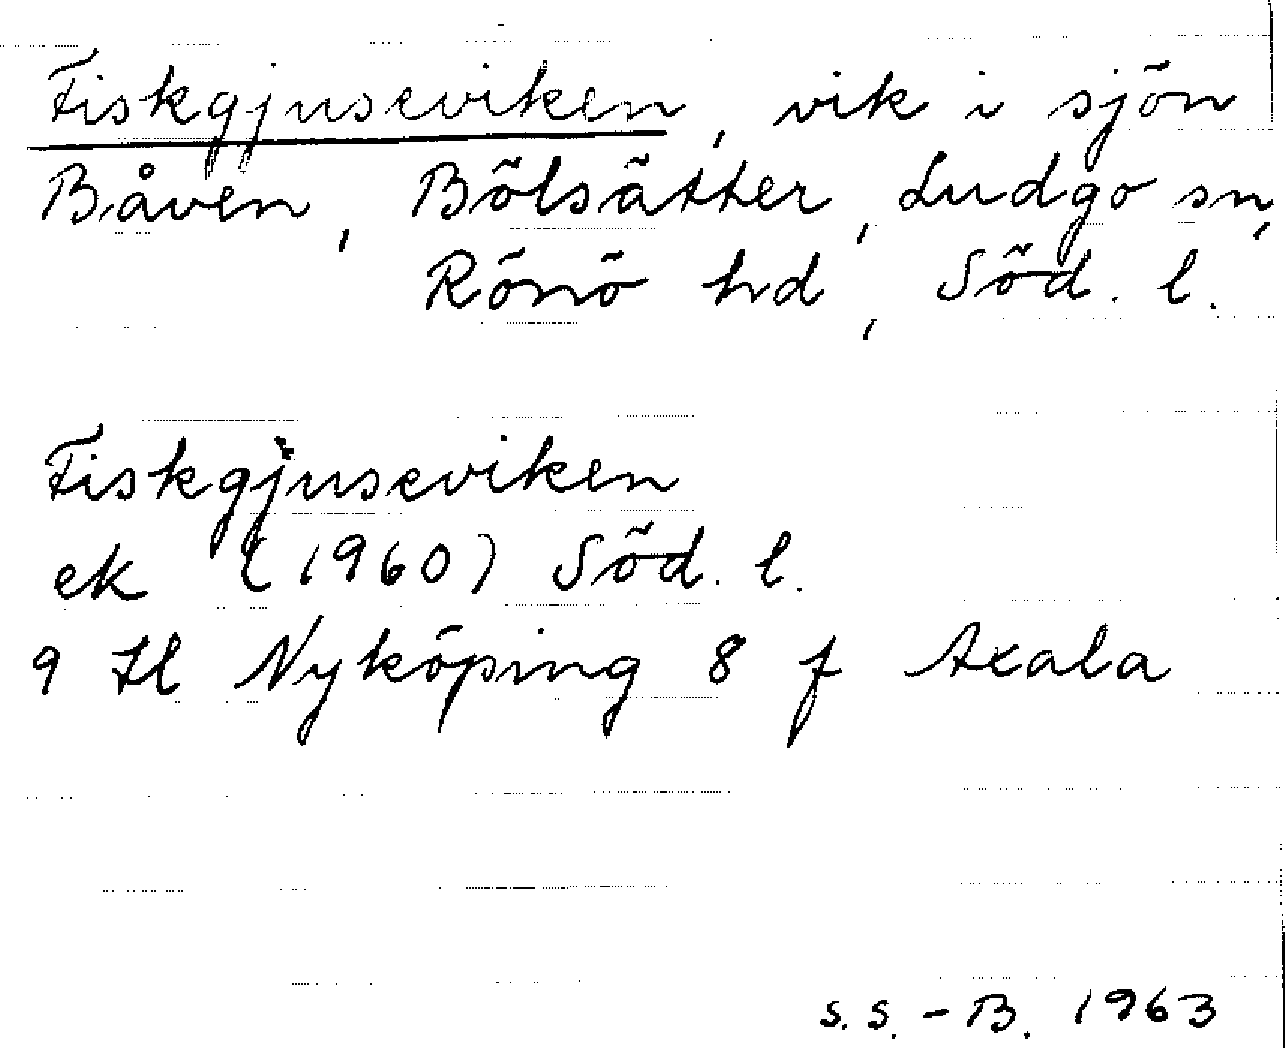 Fiskgjuseviken, vik i sjön
Båven, Bölsätter, Ludgo sn,
Rönö hd, Söd. l.
Fiskgjuseviken
ek (1960) Söd. l.
9 Hl Nyköping 8 f Axala
S.S.-B. 1963